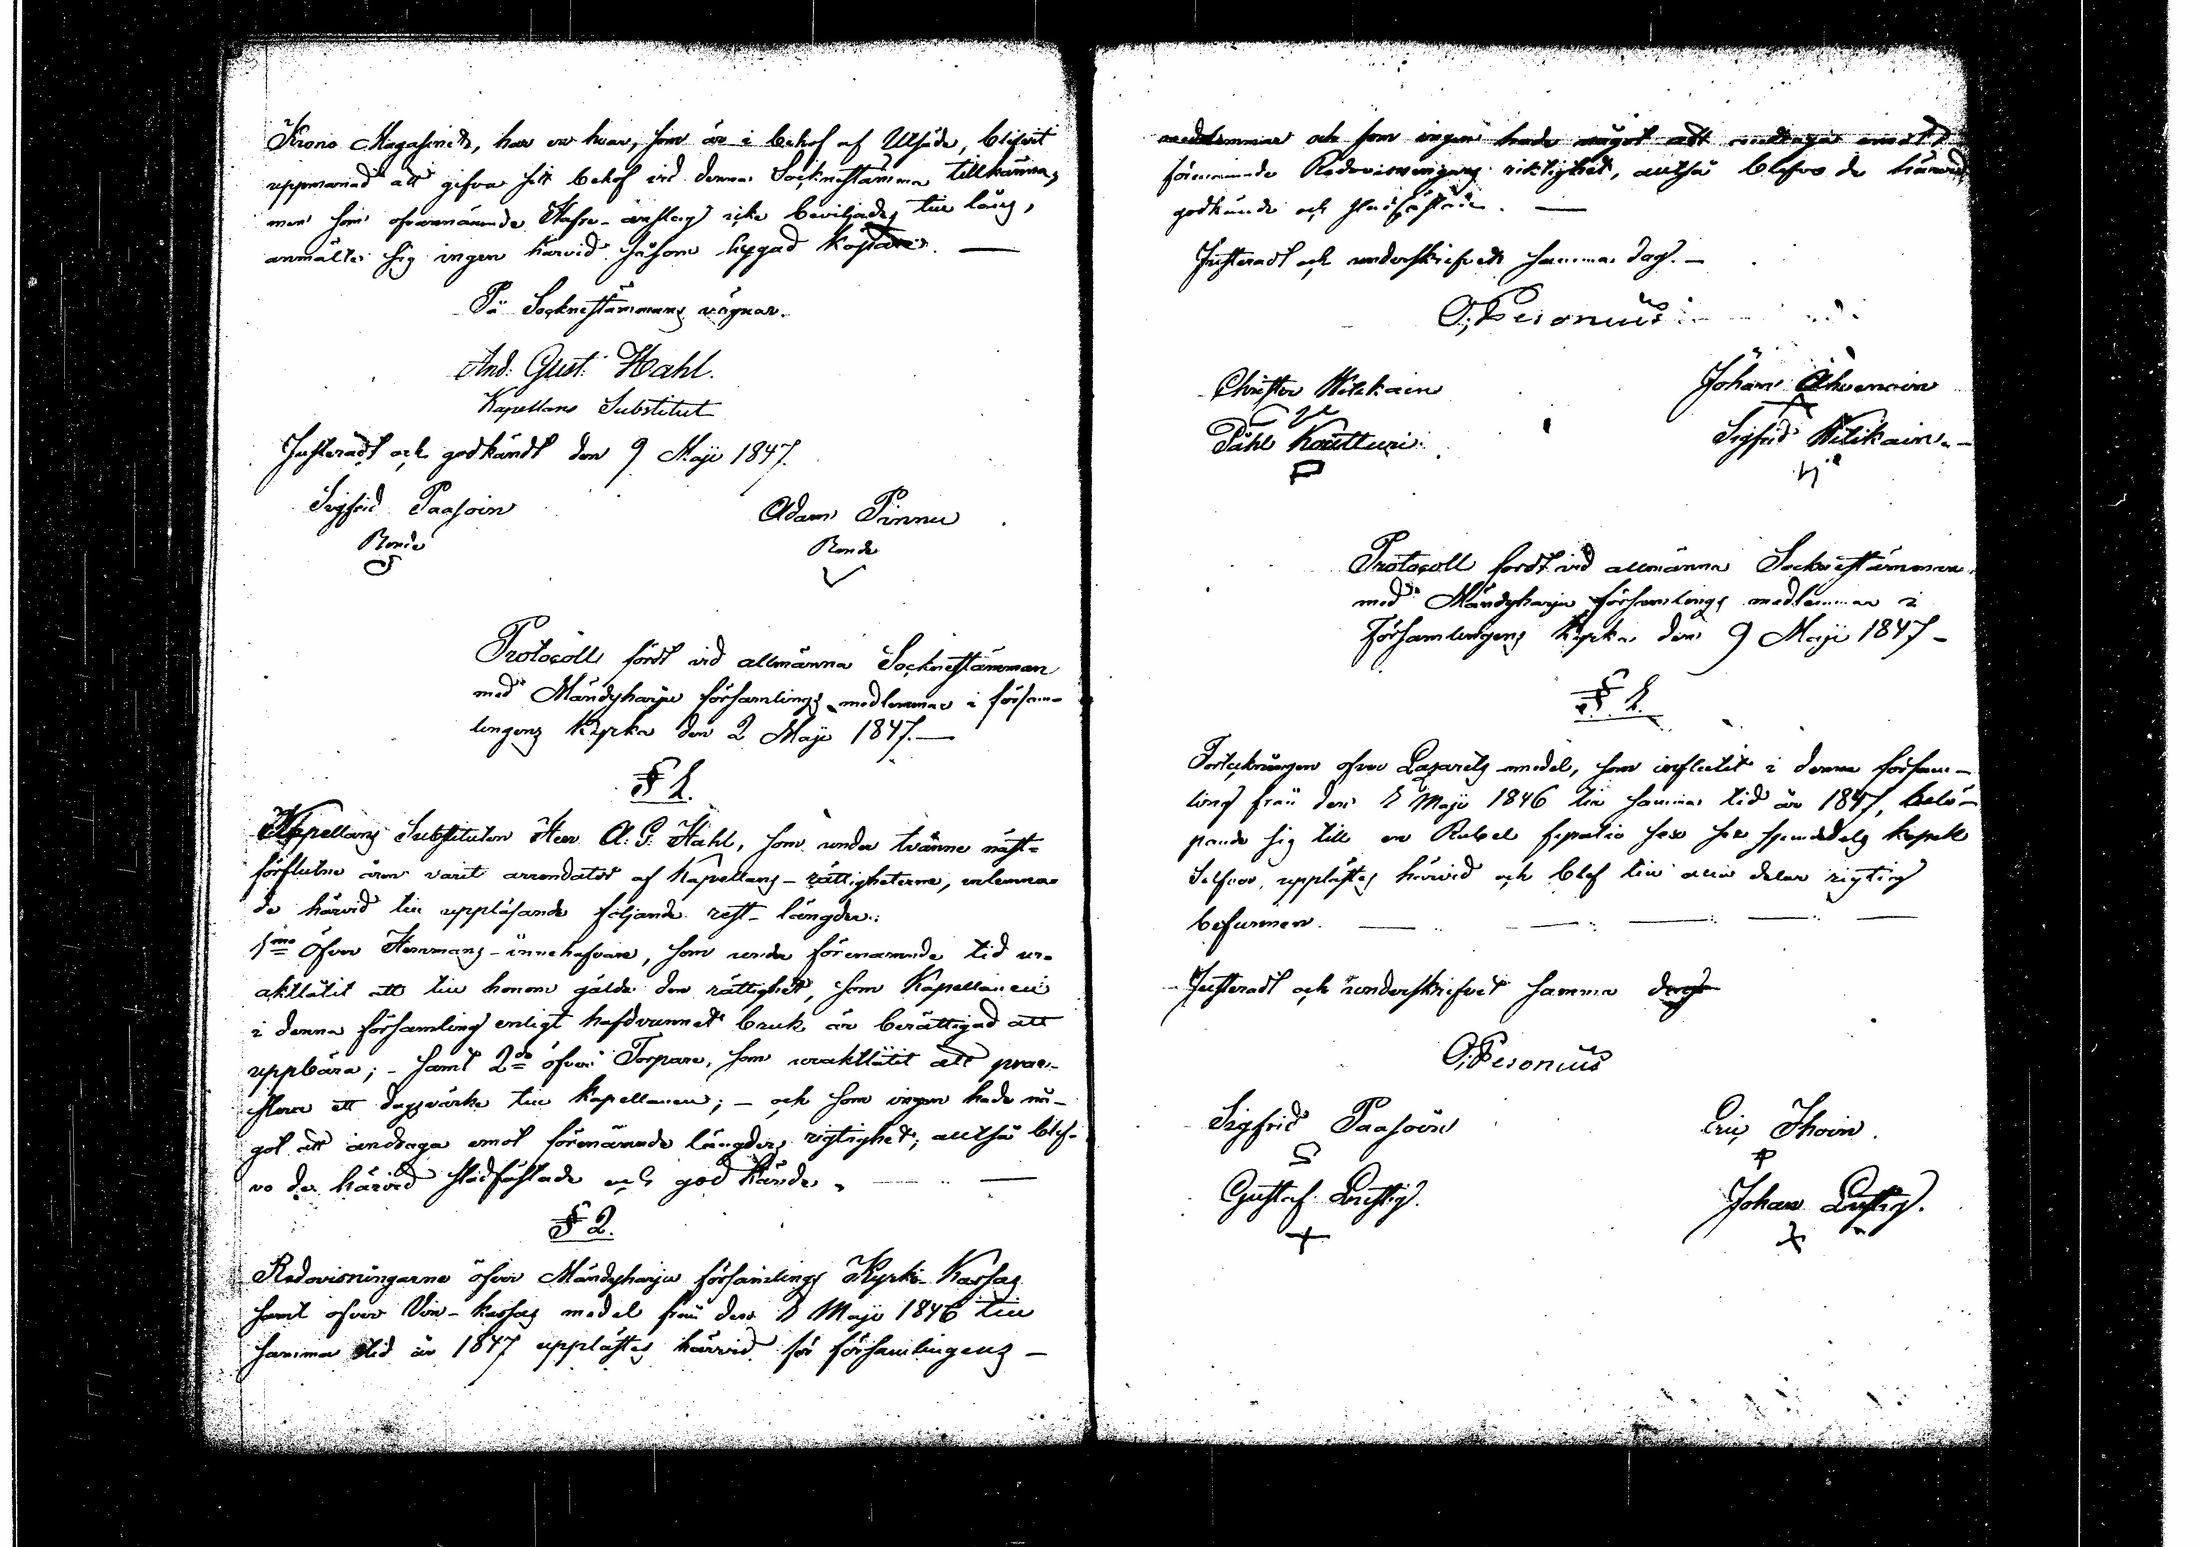 Krono Magasinet, har en hvar, som är i behof af Utsäde, blifvit
uppmanad att gifva sitt behof vid denna Sockenstämma tillkänna,
men som ofvannämnde Hafre-anslag icke beviljades till låns,
anmälte sig ingen härvid såsom hugad köpare. —
På Sockenstämmans vägnar.
And: Gust: Hahl.
Kapellans Substitut
Justeradt och godkändt den 9 Maji 1847.
Sigfrid Paasoin
Adam Pinnu
Bonde
Bonde
Protocoll fördt vid allmänna Sockenstämman
med Mändyharju församlings medlemmar i försam-
lingens Kyrka den 2 Maji 1847. —
§ 1.
Kapellans Substituten Herr A. G. Hahl, som under tvänne näst-
förflutne åren varit arrendator af Kapellans-rättigheterne, inlemna-
de härvid till uppläsande följande rest-längder:
1mo Öfver Hemmans-innehafvare, som under förenämnde tid u-
raktlåtit att till honom gälda den rättighet, som Kapellanen
i denna församling enligt häfdvunnet bruk är berättigad att
uppbära; - samt 2do öfver Torpare, som uraktlåtit att præ-
stera ett dagsvärke till Kapellanen; — och som ingen hade nå-
got att andraga emot förenämnde längders rigtighet; alltså blef-
vo de härvid stadfästade och godkände. —
§ 2.
Redovisningarne öfver Mändyharju församlings Kyrko-Kassas
samt öfver Vin-kassas medel från den 1 Maji 1846 till
samma tid år 1847 upplästes härvid för församlingens —
medlemmar och som ingen hade något att andraga emot
förenämnde Redovisningars riktighet, alltså blefvo de härvid
godkände och stadfästade. —
Justeradt och underskrifvet samma dag. —
O. Pesonius
Christer Hilskain
Johan Ahvenain
Påhl Koutturi
Sigfrid Hilikain
Protocoll fördt vid allmänna Sockenstämman
med Mändyharju församlings medlemmar i
Församlingens Kyrka den 9 Maji 1847 —
§ 1.
Förteckningen öfver Lazaretts-medel, som influtit i denna försam-
ling från den 1 Maji 1846 till samma tid år 1847, belö-
pande sig till en Rubel sjutio sex kopek
Silfver, upplästes härvid och blef till alla delar rigtig
befunnen. —
Justeradt och underskrifvet samma dag
O. Pesonius
Sigfrid Paasoin
Eric Ihoin.
Gustaf Lustig.
Johan Lustig.